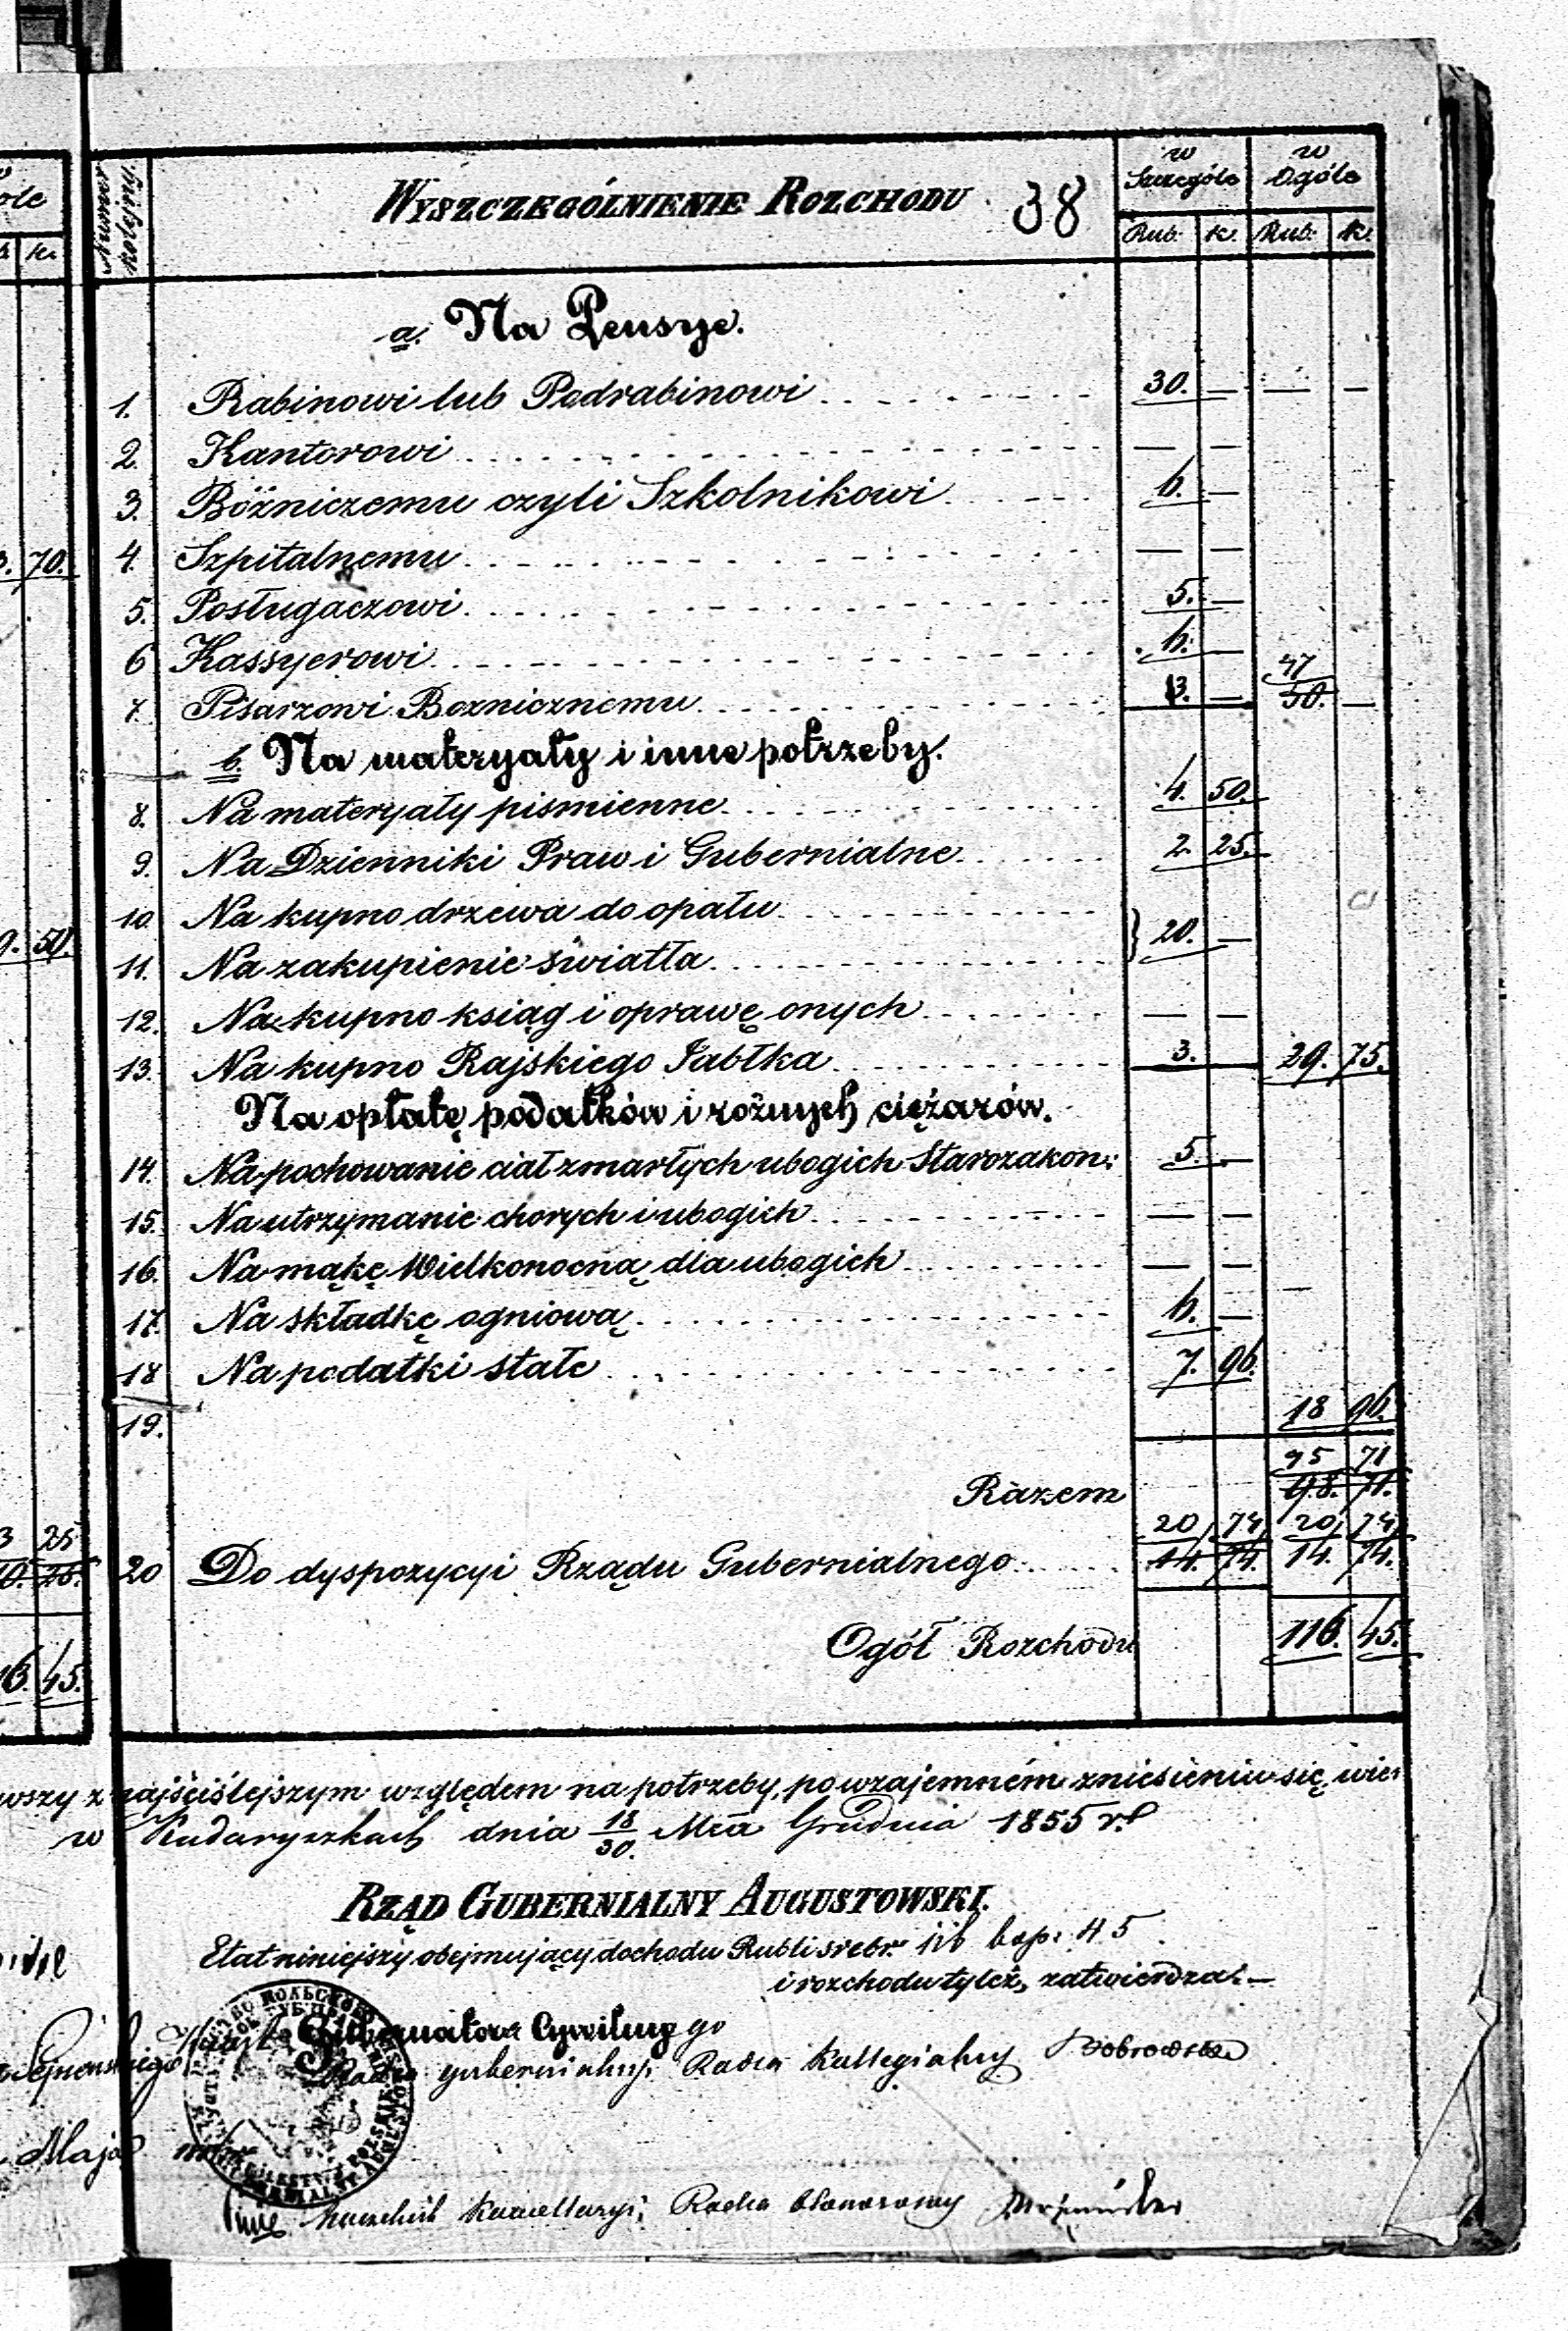 Numer kolejny
WYSZCZEGÓLNIENIE ROZCHODU 38
w Szczególe w Ogóle
Rub. k. Rub. k.
a. Na Pensye.
1. Rabinowi lub Podrabinowi 30. — — —
2. Kantorowi — —
3. Bóżniczemu czyli Szkolnikowi 6. —
4. Szpitalnemu — —
5. Posługaczowi 5. —
6 Kassyerowi 6. —
47
7. Pisarzowi Boznicznemu 3. — 50. —
b. Na materyały i inne potrzeby.
8. Na materyały pismienne 4. 50.
9. Na Dzienniki Praw i Gubernialne 2. 25.
10. Na kupno drzewa do opału
} 20. —
11. Na zakupienie światła
12. Na kupno ksiąg i oprawę onych — —
13. Na kupno Rajskiego Jabłka 3. — 29. 75.
Na opłatę podatków i rożnych ciężarów.
14. Na pochowanie ciał zmarłych ubogich Starozakon: 5. —
15. Na utrzymanie chorych i ubogich — —
16. Na mąkę Wielkonocną dla ubogich — — —
17. Na składkę ogniową 6. —
18 Na podatki stałe 7. 96.
19. 18 96.
95 71
Razem 98. 71.
20 74 20 74
20 Do dyspozycyi Rządu Gubernialnego 14. 74. 14. 74.
Ogół Rozchodu 116. 45.
70.
50.
25
45.
wszy z najściślejszym względem na potrzeby, po wzajemném zniesieniu się, wier
w Kudaryszkach dnia 18/30. Mca Grudnia 1855 r.
RZĄD GUBERNIALNY AUGUSTOWSKI.
Etat niniejszy obejmujący dochodu Rubli srebr. 116 kop: 45
i rozchodu tyleż, zatwierdza. —
Gubernatora Cywilnego
Radca gubernialny, Radca Kollegialny
Maja
Naczelnik Kancellaryi, Radca Honorowy